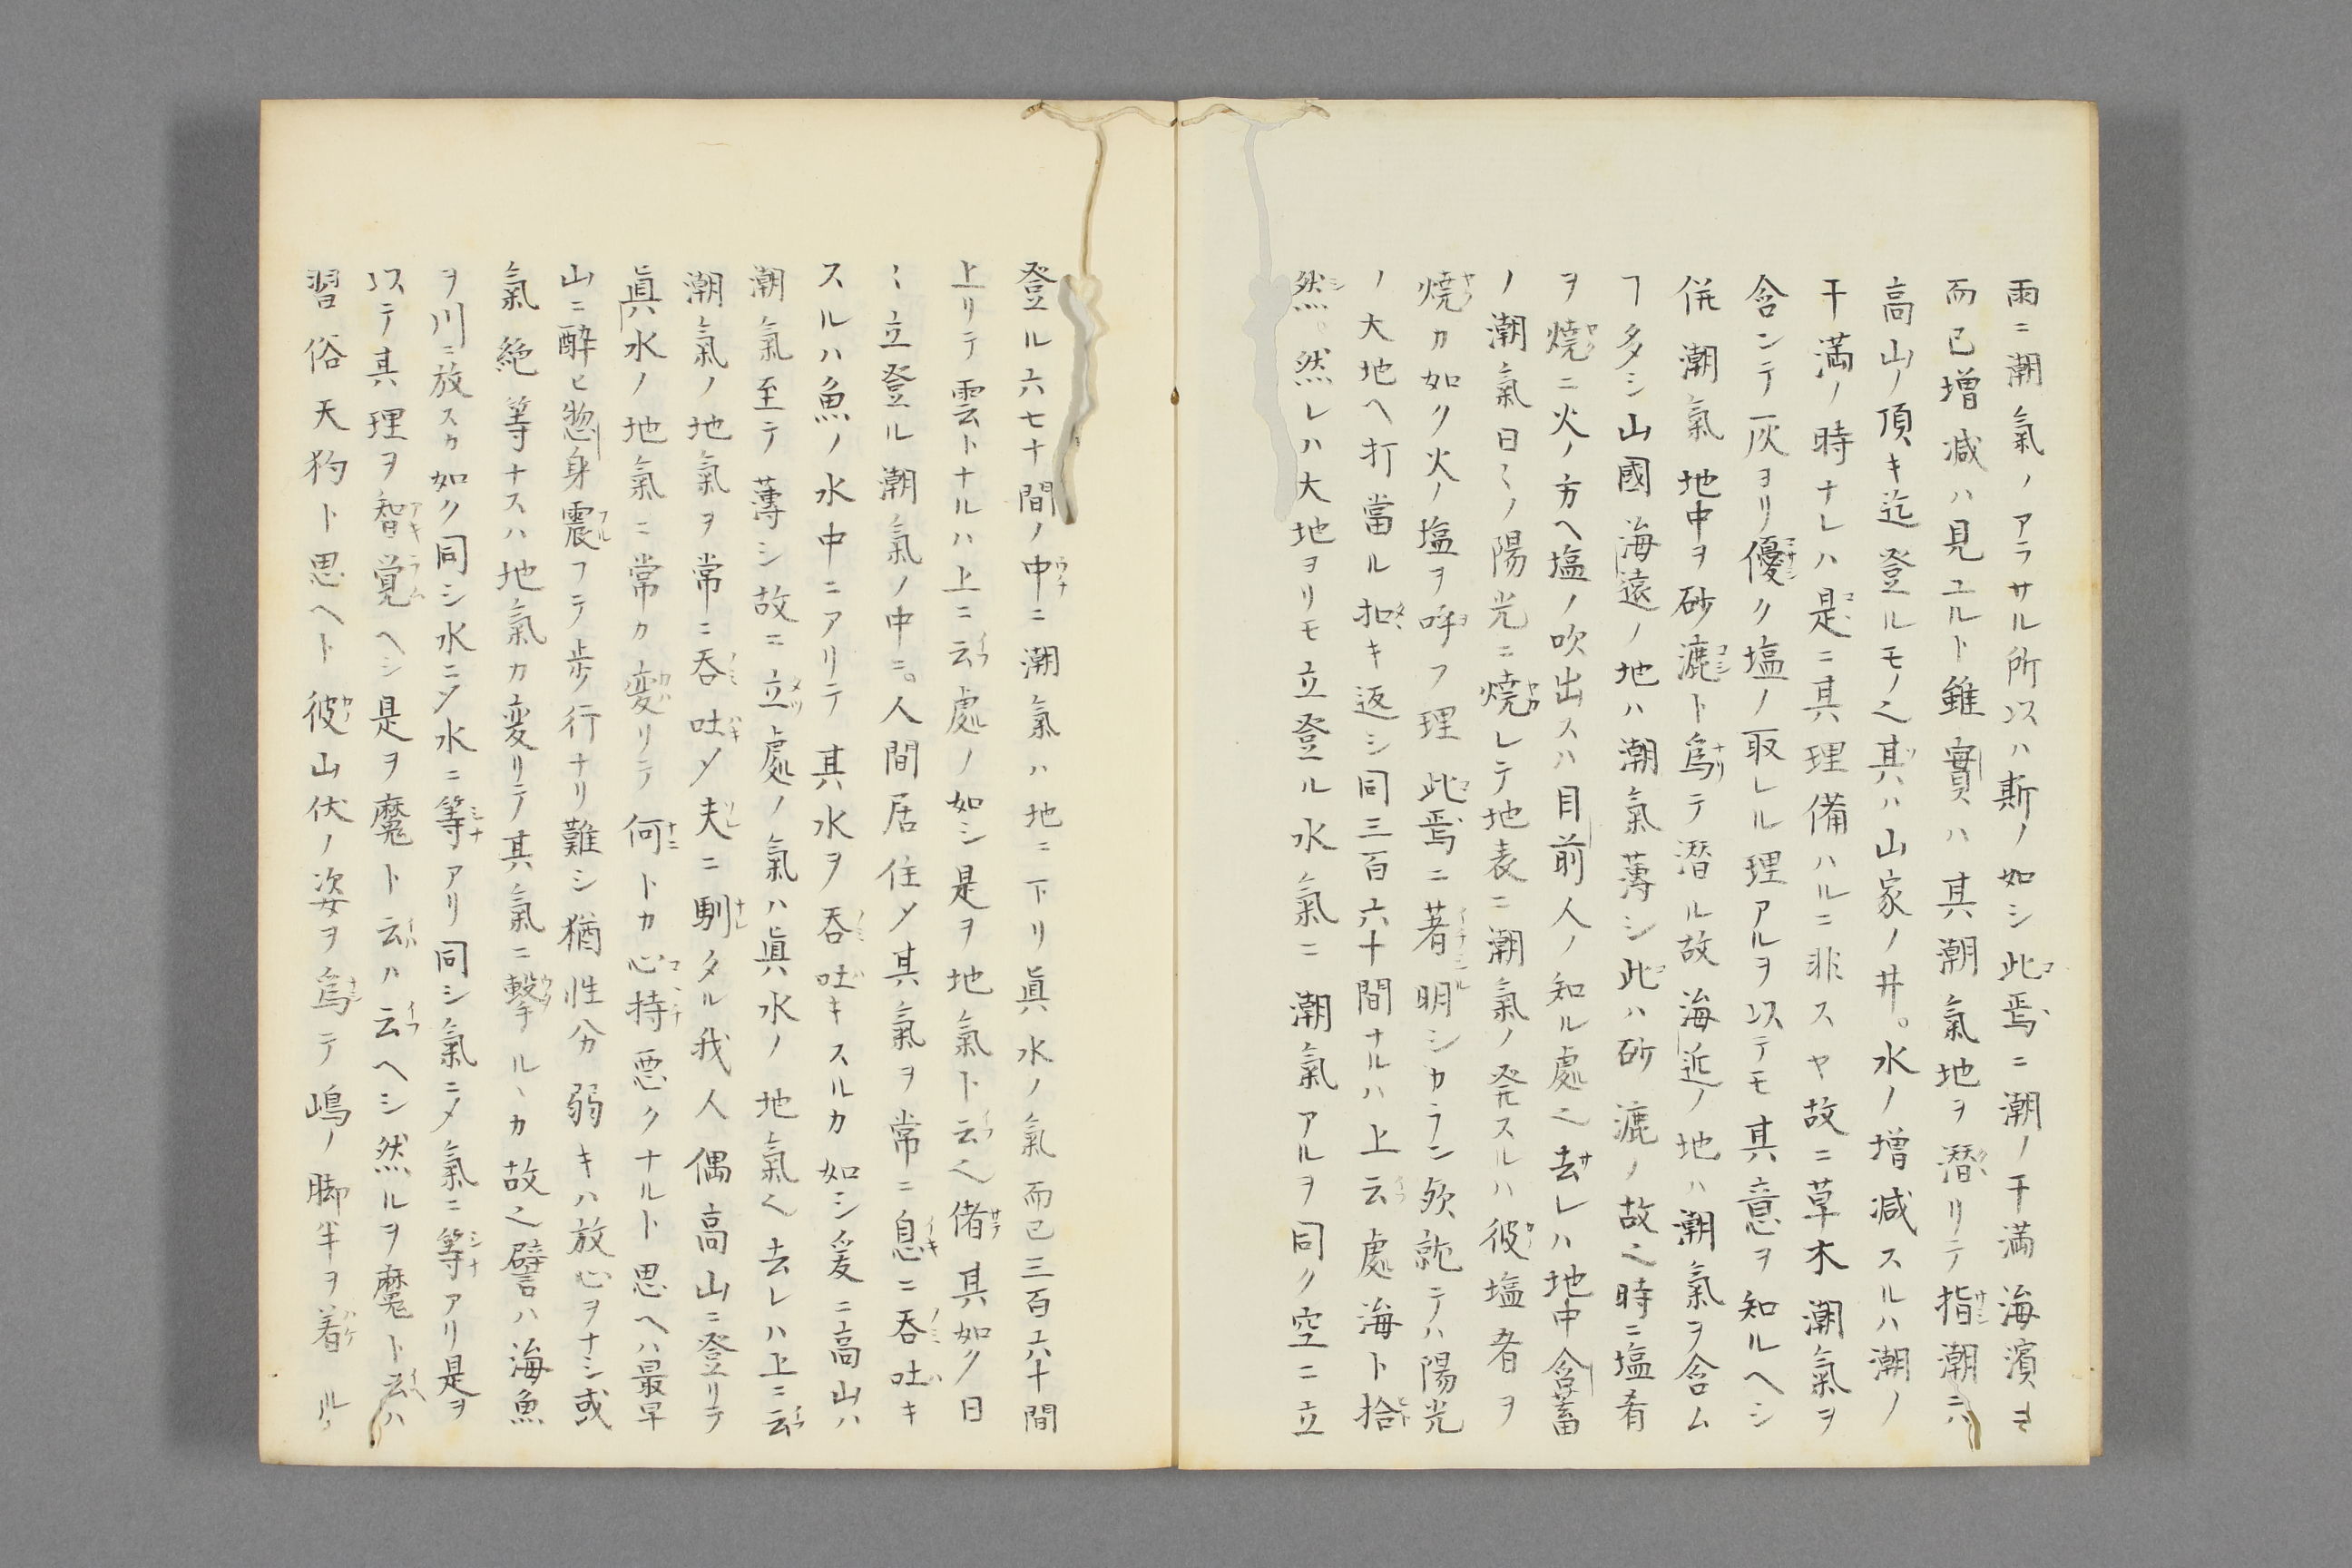 雨ニ潮氣ノアラサル所以ハ斯ノ如シ此焉ニ潮ノ干満海濱ヨ
而已増減ハ見ユルト雖實ハ其潮氣地ヲ潜リテ指潮ニハ
高山ノ頂キ迄登ルモノ也其ハ山家ノ井。水ノ増減スルハ潮ノ
干満ノ時ナレハ是ニ其理備ハルニ非スヤ故ニ草木潮氣ヲ
含ンテ灰ヨリ優ク塩ノ取レル理アルヲ以テモ其意ヲ知ルヘシ
併潮氣地中ヲ砂漉ト爲テ潜ル故海近ノ地ハ潮氣ヲ含ム
ヿ多シ山國海遠ノ地ハ潮氣薄シ此ハ砂漉ノ故也時ニ塩肴
ヲ燒ニ火ノ方ヘ塩ノ吹出スハ目前人ノ知ル處也去レハ地中含蓄
ノ潮氣日〻ノ陽光ニ燒レテ地表ニ潮氣ノ発スルハ彼塩肴ヲ
燒カ如ク火ノ塩ヲ呼フ理此焉ニ著明シカラン欤就テハ陽光
ノ大地ヘ打當ル扣キ返シ同三百六十間ナルハ上云處海ト拾
然。然レハ大地ヨリモ立登ル水氣ニ潮氣アルヲ同ク空ニ立
登ル六七十間ノ中ニ潮氣ハ地ニ下リ眞水ノ氣而已三百六十間
上リテ雲トナルハ上ニ云處ノ如シ是ヲ地氣ト云也偖其如ク日
〻立登ル潮氣ノ中ニ。人間居住〆其氣ヲ常ニ息ニ呑吐キ
スルハ魚ノ水中ニアリテ其水ヲ呑吐キスルカ如シ爰ニ高山ハ
潮氣至テ薄シ故ニ立處ノ氣ハ眞水ノ地氣也去レハ上ニ云
潮氣ノ地氣ヲ常ニ呑吐〆夫ニ馴タル我人偶高山ニ登リテ
眞水ノ地氣ニ常カ変リテ何トカ心持悪クナルト思ヘハ最早
山ニ酔ヒ惣身震フテ歩行ナリ難シ猶性分弱キハ放心ヲナシ或
氣絶等ナスハ地氣カ変リテ其氣ニ擊ルヽカ故也譬ハ海魚
ヲ川ニ放スカ如ク同シ水ニ〆水ニ等アリ同シ氣ニ〆氣ニ等アリ是ヲ
以テ其理ヲ智覚ヘシ是ヲ魔ト云ハ云ヘシ然ルヲ魔ト云ハ
習俗天狗ト思ヘト彼山伏ノ姿ヲ爲テ嶋ノ脚半ヲ着ル